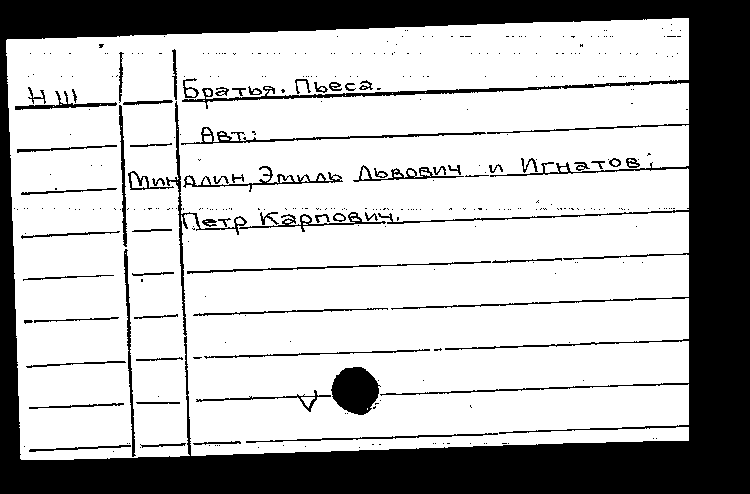 Н III Братья. Пьеса.
Авт.:
Миналин, Эмиль Львович и Игнатов,
Петр Карпович.